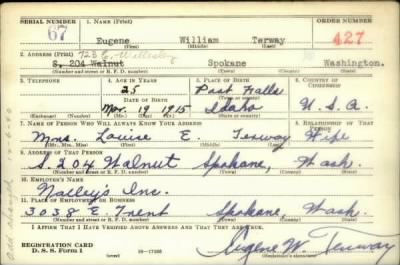 SERIAL NUMBER 1. NAME (Print) ORDER NUMBER
67 Eugene William Terway 427
(First) (Middle) (Last)
2. ADDRESS (Print) 723 E. Wellesley
S. 204 Walnut Spokane Washington.
(Number and street or R. F. D. number) (Town) (County) (State)
3. TELEPHONE 4. AGE IN YEARS 5. PLACE OF BIRTH 6. COUNTRY OF CITIZENSHIP
25 Post Falls
DATE OF BIRTH (Town or county)
Mar. 19 1915 Idaho U.S.A.
(Exchange) (Number) (Mo.) (Day) (Yr.) (State or country)
7. NAME OF PERSON WHO WILL ALWAYS KNOW YOUR ADDRESS 8. RELATIONSHIP OF THAT PERSON
Mrs. Louise E. Terway Wife
(Mr., Mrs., Miss) (First) (Middle) (Last)
9. ADDRESS OF THAT PERSON
S. 204 Walnut Spokane, Wash.
(Number and street or R. F. D. number) (Town) (County) (State)
10. EMPLOYER'S NAME
Nalley's Inc.
11. PLACE OF EMPLOYMENT OR BUSINESS
3038 E. Trent Spokane Wash.
(Number and street or R. F. D. number) (Town) (County) (State)
I AFFIRM THAT I HAVE VERIFIED ABOVE ANSWERS AND THAT THEY ARE TRUE.
REGISTRATION CARD
D. S. S. Form 1 (over) 16-17105 Eugene W. Terway